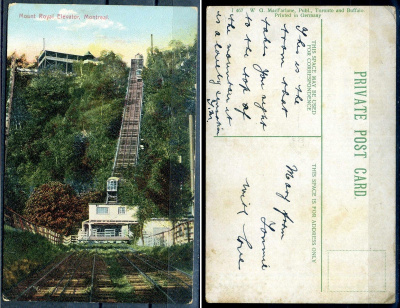 Mount Royal Elevator, Montreal.
407 W. G. MacFarlane, Publ., Toronto and Buffalo
Printed in Germany
THIS SPACE MAY BE USED
FOR CORRESPONDENCE
This is the
tram that
takes you right
to the top of
the mountain it
is a lovely
PRIVATE POST CARD
THIS SPACE IS FOR ADDRESS ONLY
Mary from
Lonnie
with love